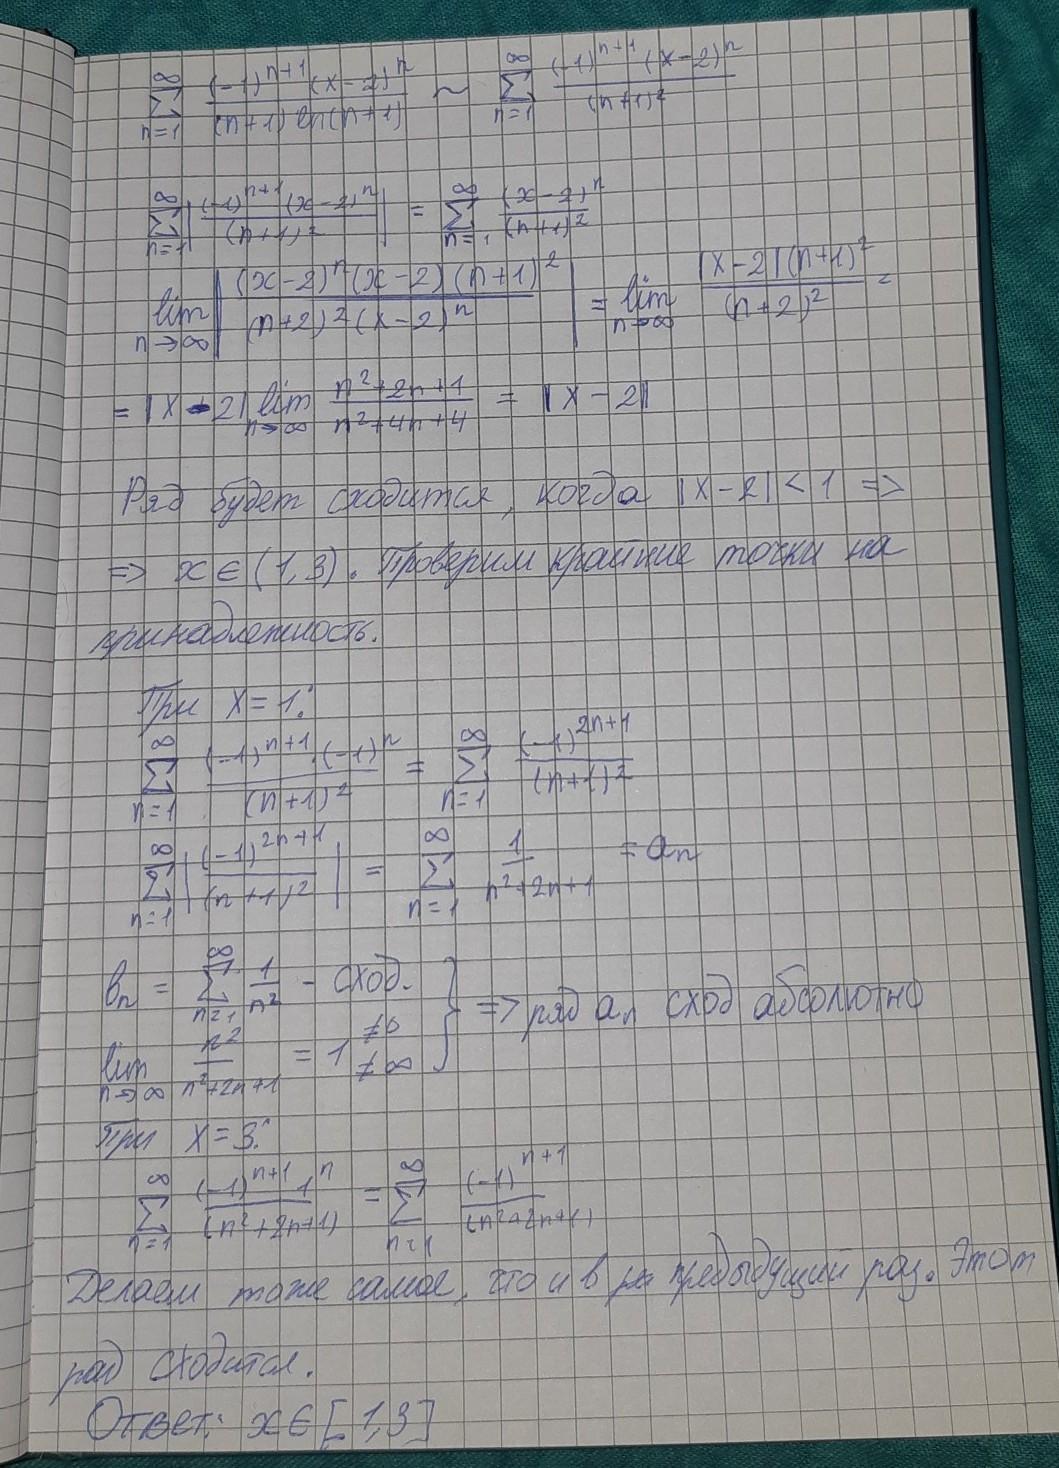 ∑_{n=1}^{∞} (-1)^{n+1}(x-2)^n / (n+1) ln(n+1) ~ ∑_{n=1}^{∞} (-1)^{n+1}(x-2)^n / (n+1)^2
∑_{n=1}^{∞} | (-1)^{n+1}(x-2)^n / (n+1)^2 | = ∑_{n=1}^{∞} (x-2)^n / (n+1)^2
lim_{n→∞} | (x-2)^n (x-2)(n+1)^2 / (n+2)^2 (x-2)^n | = lim_{n→∞} |x-2|(n+1)^2 / (n+2)^2 =
= |x-2| lim_{n→∞} n^2+2n+1 / n^2+4n+4 = |x-2|
Ряд будет сходится, когда |x-2| < 1 =>
=> x ∈ (1,3). Проверим крайние точки на
принадлежность.
При x=1:
∑_{n=1}^{∞} (-1)^{n+1}·(-1)^n / (n+1)^2 = ∑_{n=1}^{∞} (-1)^{2n+1} / (n+1)^2
∑_{n=1}^{∞} | (-1)^{2n+1} / (n+1)^2 | = ∑_{n=1}^{∞} 1 / n^2+2n+1 = a_n
b_n = ∑_{n=1}^{∞} 1 / n^2 - сход.
lim_{n→∞} n^2 / n^2+2n+1 = 1 ≠0 ≠∞ } => ряд a_n сход абсолютно
При x=3:
∑_{n=1}^{∞} (-1)^{n+1} 1^n / (n^2+2n+1) = ∑_{n=1}^{∞} (-1)^{n+1} / (n^2+2n+1)
Делаем тоже самое, что и в предыдущий раз. Этот
ряд сходится.
Ответ: x ∈ [1,3]